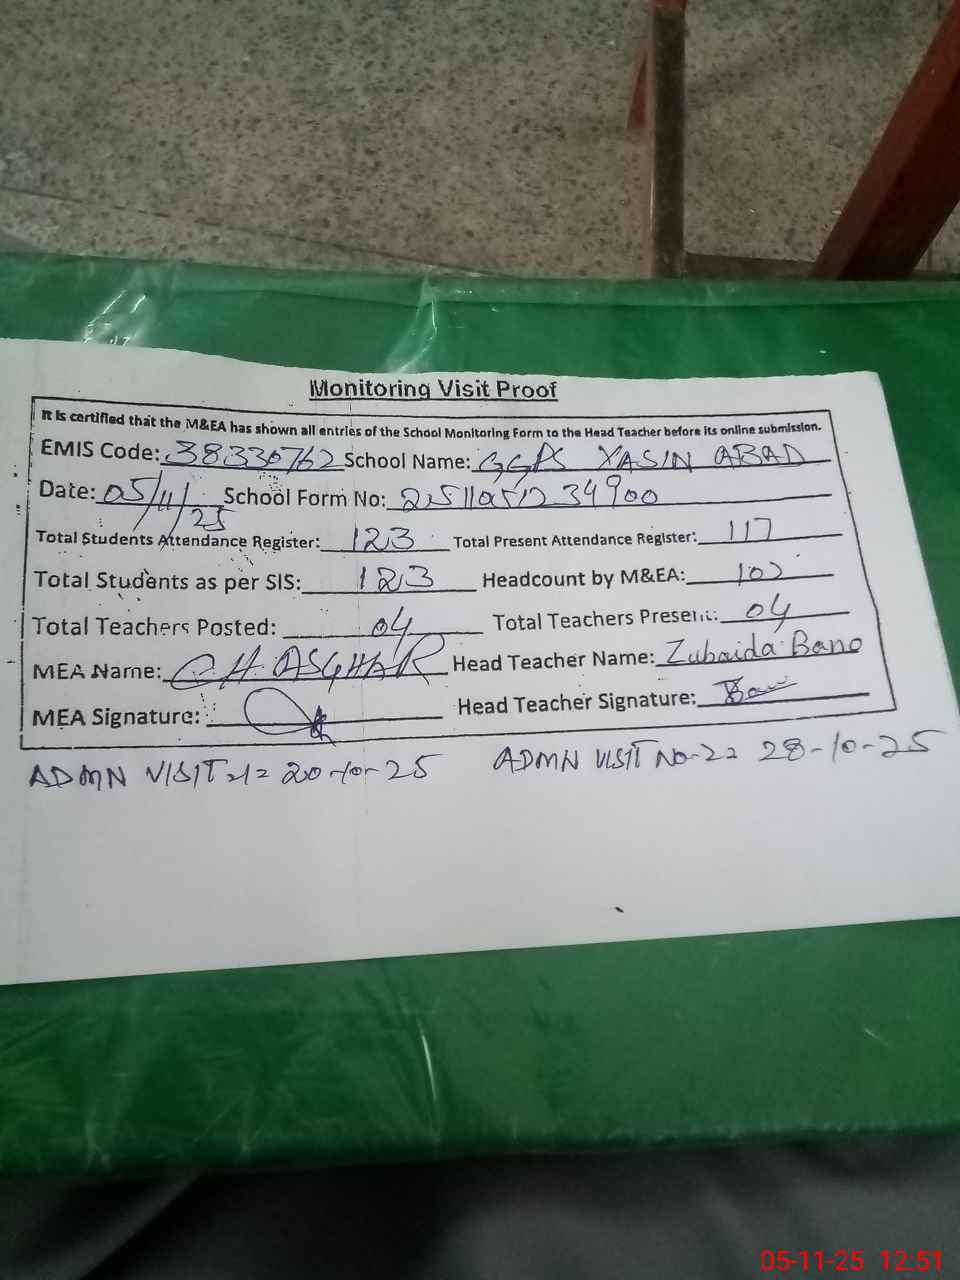 Monitoring Visit Proof
It is certified that the M&EA has shown all entries of the School Monitoring Form to the Head Teacher before its online submission.
EMIS Code: 38330762 School Name: GGPS YASIN ABAD
Date: 05/11/25 School Form No: 2511051234900
Total Students Attendance Register: 123 Total Present Attendance Register: 117
Total Students as per SIS: 123 Headcount by M&EA: 102
Total Teachers Posted: 04 Total Teachers Present: 04
MEA Name: CH. ASGHAR Head Teacher Name: Zubaida Bano
MEA Signature: Head Teacher Signature:
ADMN VISIT-1= 20-10-25 ADMN VISIT NO-2= 28-10-25
05-11-25 12:51